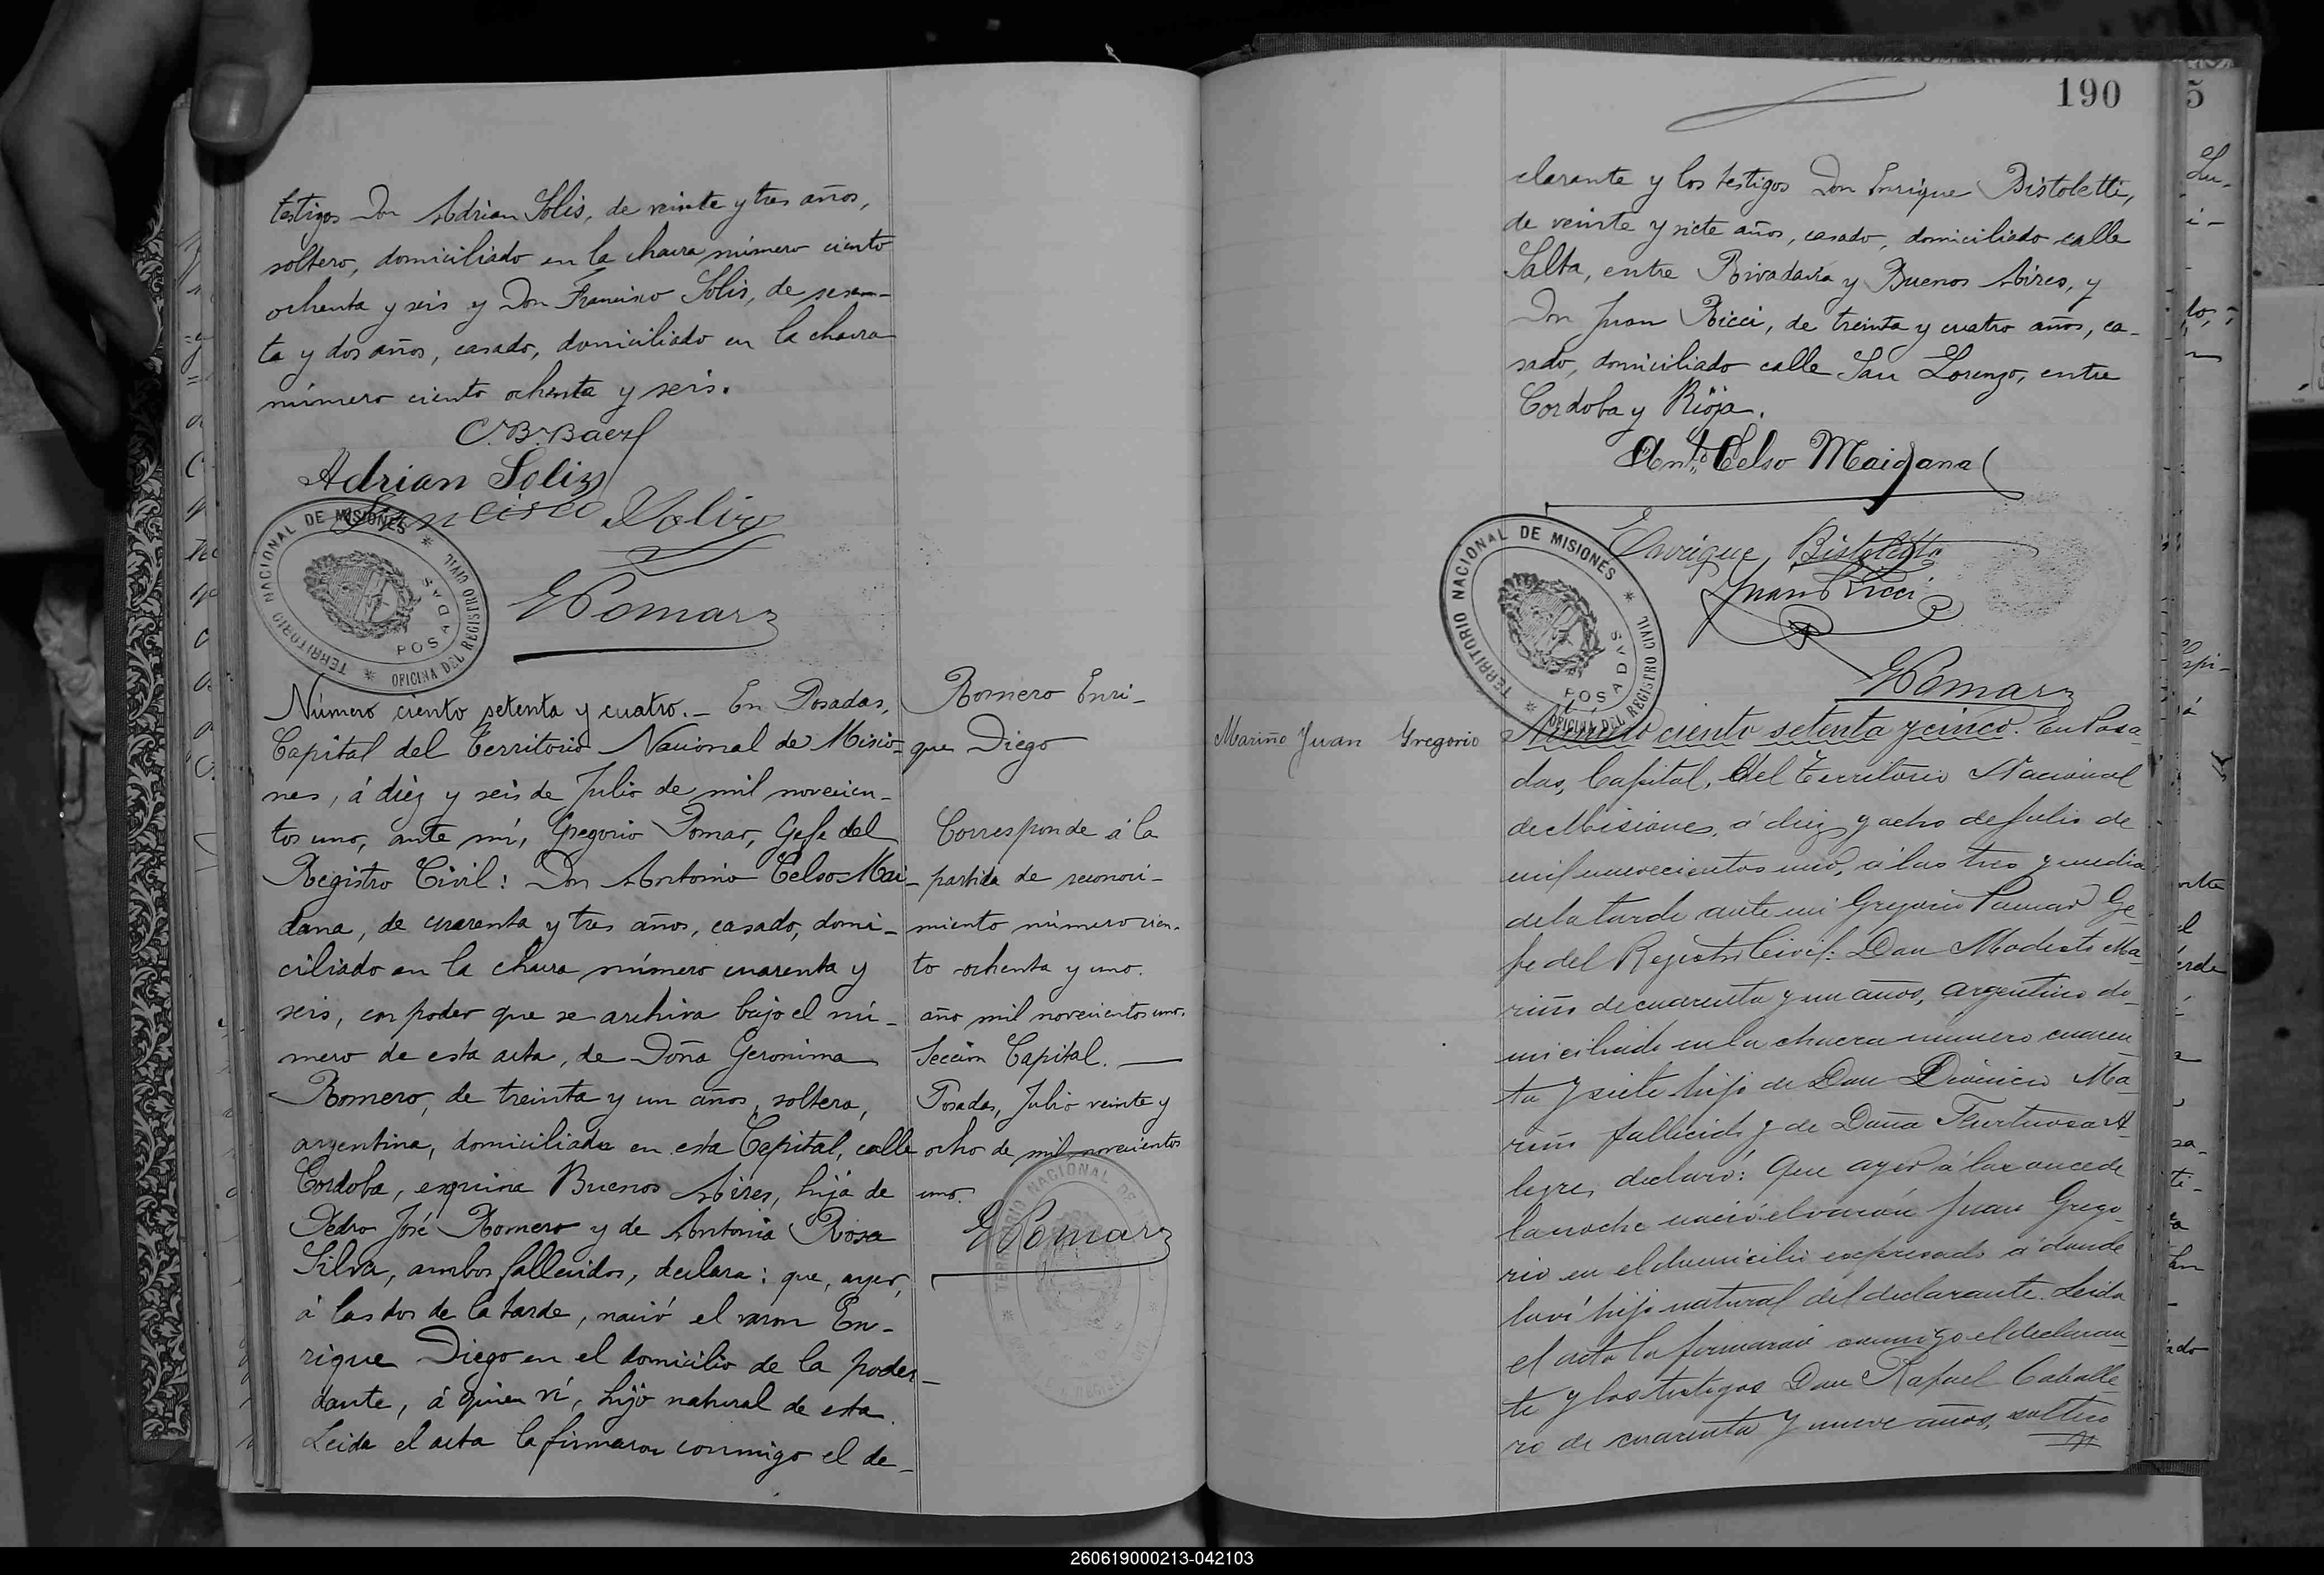 testigos Don Adrian Solis, de veinte y tres años,
soltero, domiciliado en la chacra número ciento
ochenta y seis y Don Francisco Solis, de sesen-
ta y dos años, casado, domiciliado en la chacra
número ciento ochenta y seis.
C. B. Baez
Adrian Soliz
Francisco Soliz
TERRITORIO NACIONAL DE MISIONES
OFICINA DEL REGISTRO CIVIL
POSADAS
GPomar
Número ciento setenta y cuatro.- En Posadas,
Capital del Territorio Nacional de Misio-
nes, á diez y seis de Julio de mil novecien-
tos uno, ante mí, Gregorio Pomar, Gefe del
Registro Civil: Don Antonio Celso Mai-
dana, de cuarenta y tres años, casado, domi-
ciliado en la chacra número cuarenta y
seis, con poder que se archiva bajo el nú-
mero de esta acta, de Doña Geronima
Romero, de treinta y un años, soltera,
argentina, domiciliada en esta Capital, calle
Cordoba, esquina Buenos Aires, hija de
Pedro José Romero y de Antonia Rosa
Silva, ambos fallecidos, declara: que, ayer,
á las dos de la tarde, nació el varon En-
rique Diego en el domicilio de la poder-
dante, á quien ví, hijo natural de esta.
Leida el acta la firmaron conmigo el de-
Romero Enri-
que Diego
Corresponde á la
partida de reconoci-
miento número cien-
to ochenta y uno.
año mil novecientos uno.
Seccion Capital.
Posadas, Julio veinte y
ocho de mil novecientos
uno.
GPomar
190
clarante y los testigos Don Enrique Bistoletti,
de veinte y siete años, casado, domiciliado calle
Salta, entre Rivadavia y Buenos Aires, y
Don Juan Ricci, de treinta y cuatro años, ca-
sado, domiciliado calle San Lorenzo, entre
Cordoba y Rioja.
Ant.º Celso Maidana
Enrique Bistoletti
Juan Ricci
TERRITORIO NACIONAL DE MISIONES
OFICINA DEL REGISTRO CIVIL
POSADAS
GPomar
Mariño Juan Gregorio
Número ciento setenta y cinco. En Posa-
das, Capital, del Territorio Nacional
de Misiones, á diez y ocho de Julio de
mil novecientos uno, á las tres y media
de la tarde ante mi Gregorio Pomar Ge-
fe del Registro Civil: Don Modesto Ma-
riño de cuarenta y un años, argentino do-
miciliado en la chacra numero cuaren-
ta y siete hijo de Don Dionicio Ma-
riño fallecido y de Doña Fructuosa A-
legre, declaró: Que ayer á las once de
la noche nació el varón Juan Grego-
rio en el domicilio expresado á donde
lo ví hijo natural del declarante. Leida
el acta la firmaron conmigo el declaran-
te y los testigos Don Rafael Caballe-
ro de cuarenta y nueve años, soltero
260619000213-042103